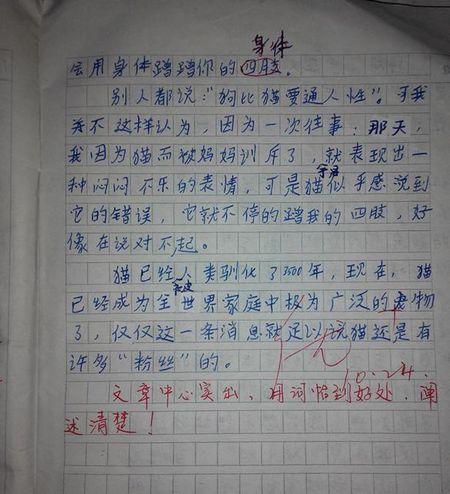 身体
会用身体蹭蹭你的四肢。
别人都说:"狗比猫要通人性"。可我
并不这样认为,因为一次往事:那天,
我因为猫而被妈妈训斥了,就表现出一
种闷闷不乐的表情,可是猫似乎感说到
它的错误,它就不停的蹭我的四肢,好
像在说对不起。
猫已经人类驯化了3500年,现在,猫
已经成为全世界家庭中极为广泛的宠物
了,仅仅这一条消息就足以说猫还是有
许多"粉丝"的。
10.24.
文章中心突出,用词恰到好处,阐
述清楚!